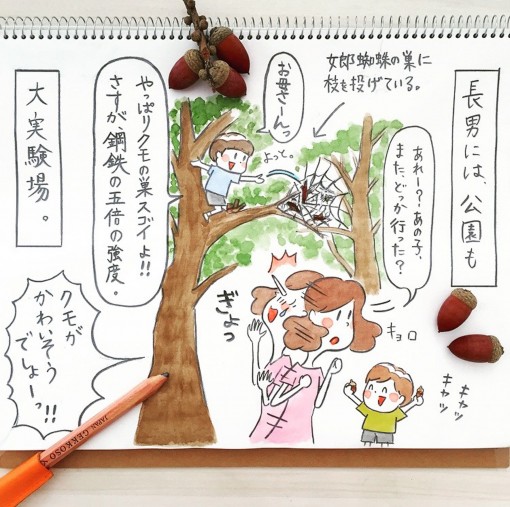 長男には、公園も
女郎蜘蛛の巣に
枝を投げている。
あれー？あの子、
また、どっか行った？
キョロ
お母さーんっ
よっと。
やっぱりクモの巣スゴイよ!!
さすが、鋼鉄の五倍の強度。
ぎょっ
キャッ
キャッ
クモが
かわいそう
でしょーっ!!
大実験場。
GEKKOSO